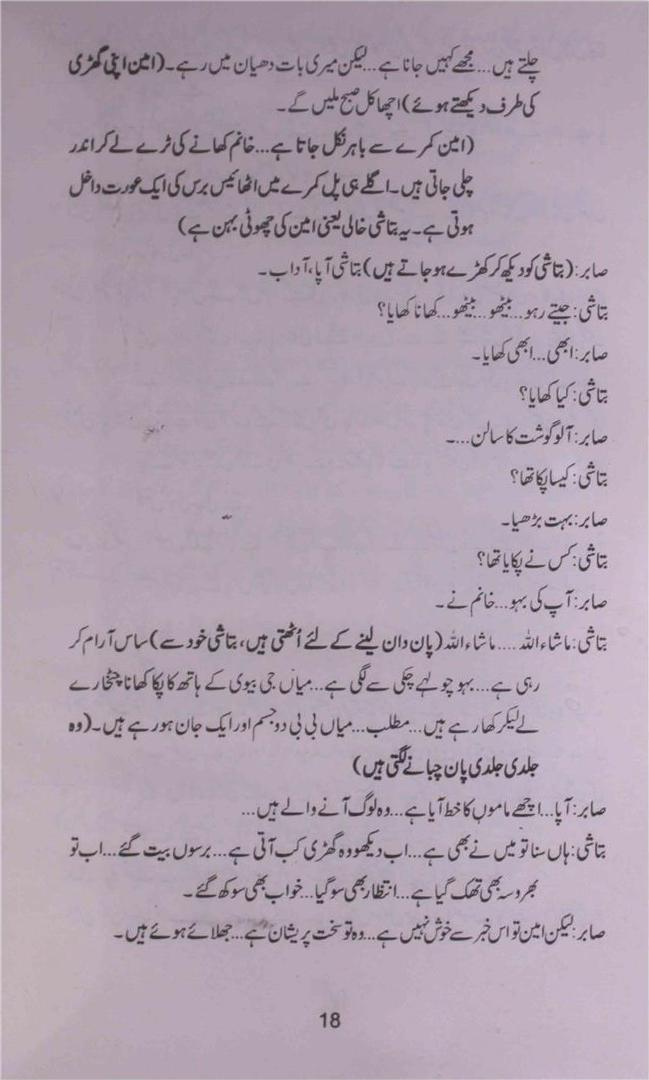 چلتے ہیں... مجھے کہیں جانا ہے... لیکن میری بات دھیان میں رہے۔ (امین اپنی گھڑی
کی طرف دیکھتے ہوئے) اچھا کل صبح ملیں گے۔
(امین کمرے سے باہر نکل جاتا ہے... خانم کھانے کی ٹرے لے کر اندر
چلی جاتی ہیں۔ اگلے ہی پل کمرے میں اٹھائیس برس کی ایک عورت داخل
ہوتی ہے۔ یہ بتاشی خالی یعنی امین کی چھوٹی بہن ہے)
صابر: (بتاشی کو دیکھ کر کھڑے ہو جاتے ہیں) بتاشی آپا، آداب۔
بتاشی: جیتے رہو... بیٹھو... بیٹھو... کھانا کھایا؟
صابر: ابھی... ابھی کھایا۔
بتاشی: کیا کھایا؟
صابر: آلو گوشت کا سالن...۔
بتاشی: کیسا پکا تھا؟
صابر: بہت بڑھیا۔
بتاشی: کس نے پکایا تھا؟
صابر: آپ کی بہو... خانم نے۔
بتاشی: ماشاء اللہ .... ماشاء اللہ (پان دان لینے کے لئے اُٹھتی ہیں، بتاشی خود سے) ساس آرام کر
رہی ہے... بہو چولہے چکی سے لگی ہے... میاں جی بیوی کے ہاتھ کا پکا کھانا چٹخارے
لے لیکر کھا رہے ہیں... مطلب... میاں بی بی دو جسم اور ایک جان ہو رہے ہیں۔ (وہ
جلدی جلدی پان چبانے لگتی ہیں)
صابر: آپا... اچھے ماموں کا خط آیا ہے... وہ لوگ آنے والے ہیں...
بتاشی: ہاں سنا تو میں نے بھی ہے... اب دیکھو وہ گھڑی کب آتی ہے... برسوں بیت گئے... اب تو
بھروسہ بھی تھک گیا ہے... انتظار بھی سو گیا... خواب بھی سوکھ گئے۔
صابر: لیکن امین تو اس خبر سے خوش نہیں ہے... وہ تو سخت پریشان ہے... جھلائے ہوئے ہیں۔
18